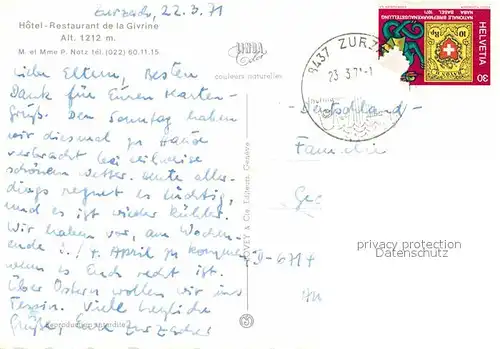 Zurzach, 22.3.71
Hôtel-Restaurant de la Givrine
Alt. 1212 m.
M. et Mme P. Notz tél. (022) 60.11.15
couleurs naturelles
Liebe Eltern, Besten
Dank für Euren Karten-
Gruß. Den Sonntag haben
wir diesmal zu Hause
verbracht bei teilweise
schönem Wetter. Heute aller-
dings regnet es tüchtig,
und es ist wieder kühler.
Wir haben vor, am Wochen-
ende 3./4. April zu kommen
wenn es Euch recht ist.
Über Ostern wollen wir ins
Tessin. Viele herzliche
Grüße, Eure Zurzacher
Reproduction interdite
& Cie, Editeurs, Genève
8437 ZURZACH
23.3.71-1
NATIONALE BRIEFMARKENAUSSTELLUNG
NABA BASEL 1971
HELVETIA
30
10 Rp.
Deutschland
Familie
D-6717
privacy protection
Datenschutz